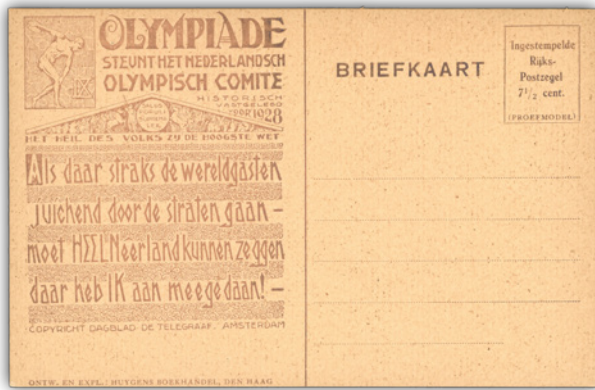 OLYMPIADE
STEUNT HET NEDERLANDSCH
OLYMPISCH COMITE
HISTORISCH
VASTGELEGD
1928
HET HEIL DES VOLKS ZY DE HOOGSTE WET
Als daar straks de wereldgasten
juichend door de straten gaan –
moet HEEL Neerland kunnen zeggen
daar heb IK aan meegedaan! –
COPYRIGHT DAGBLAD DE TELEGRAAF. AMSTERDAM
ONTW. EN EXPL.: HUYGENS BOEKHANDEL, DEN HAAG
BRIEFKAART
Ingestempelde
Rijks-
Postzegel
7 1/2 cent.
(PROEFMODEL)